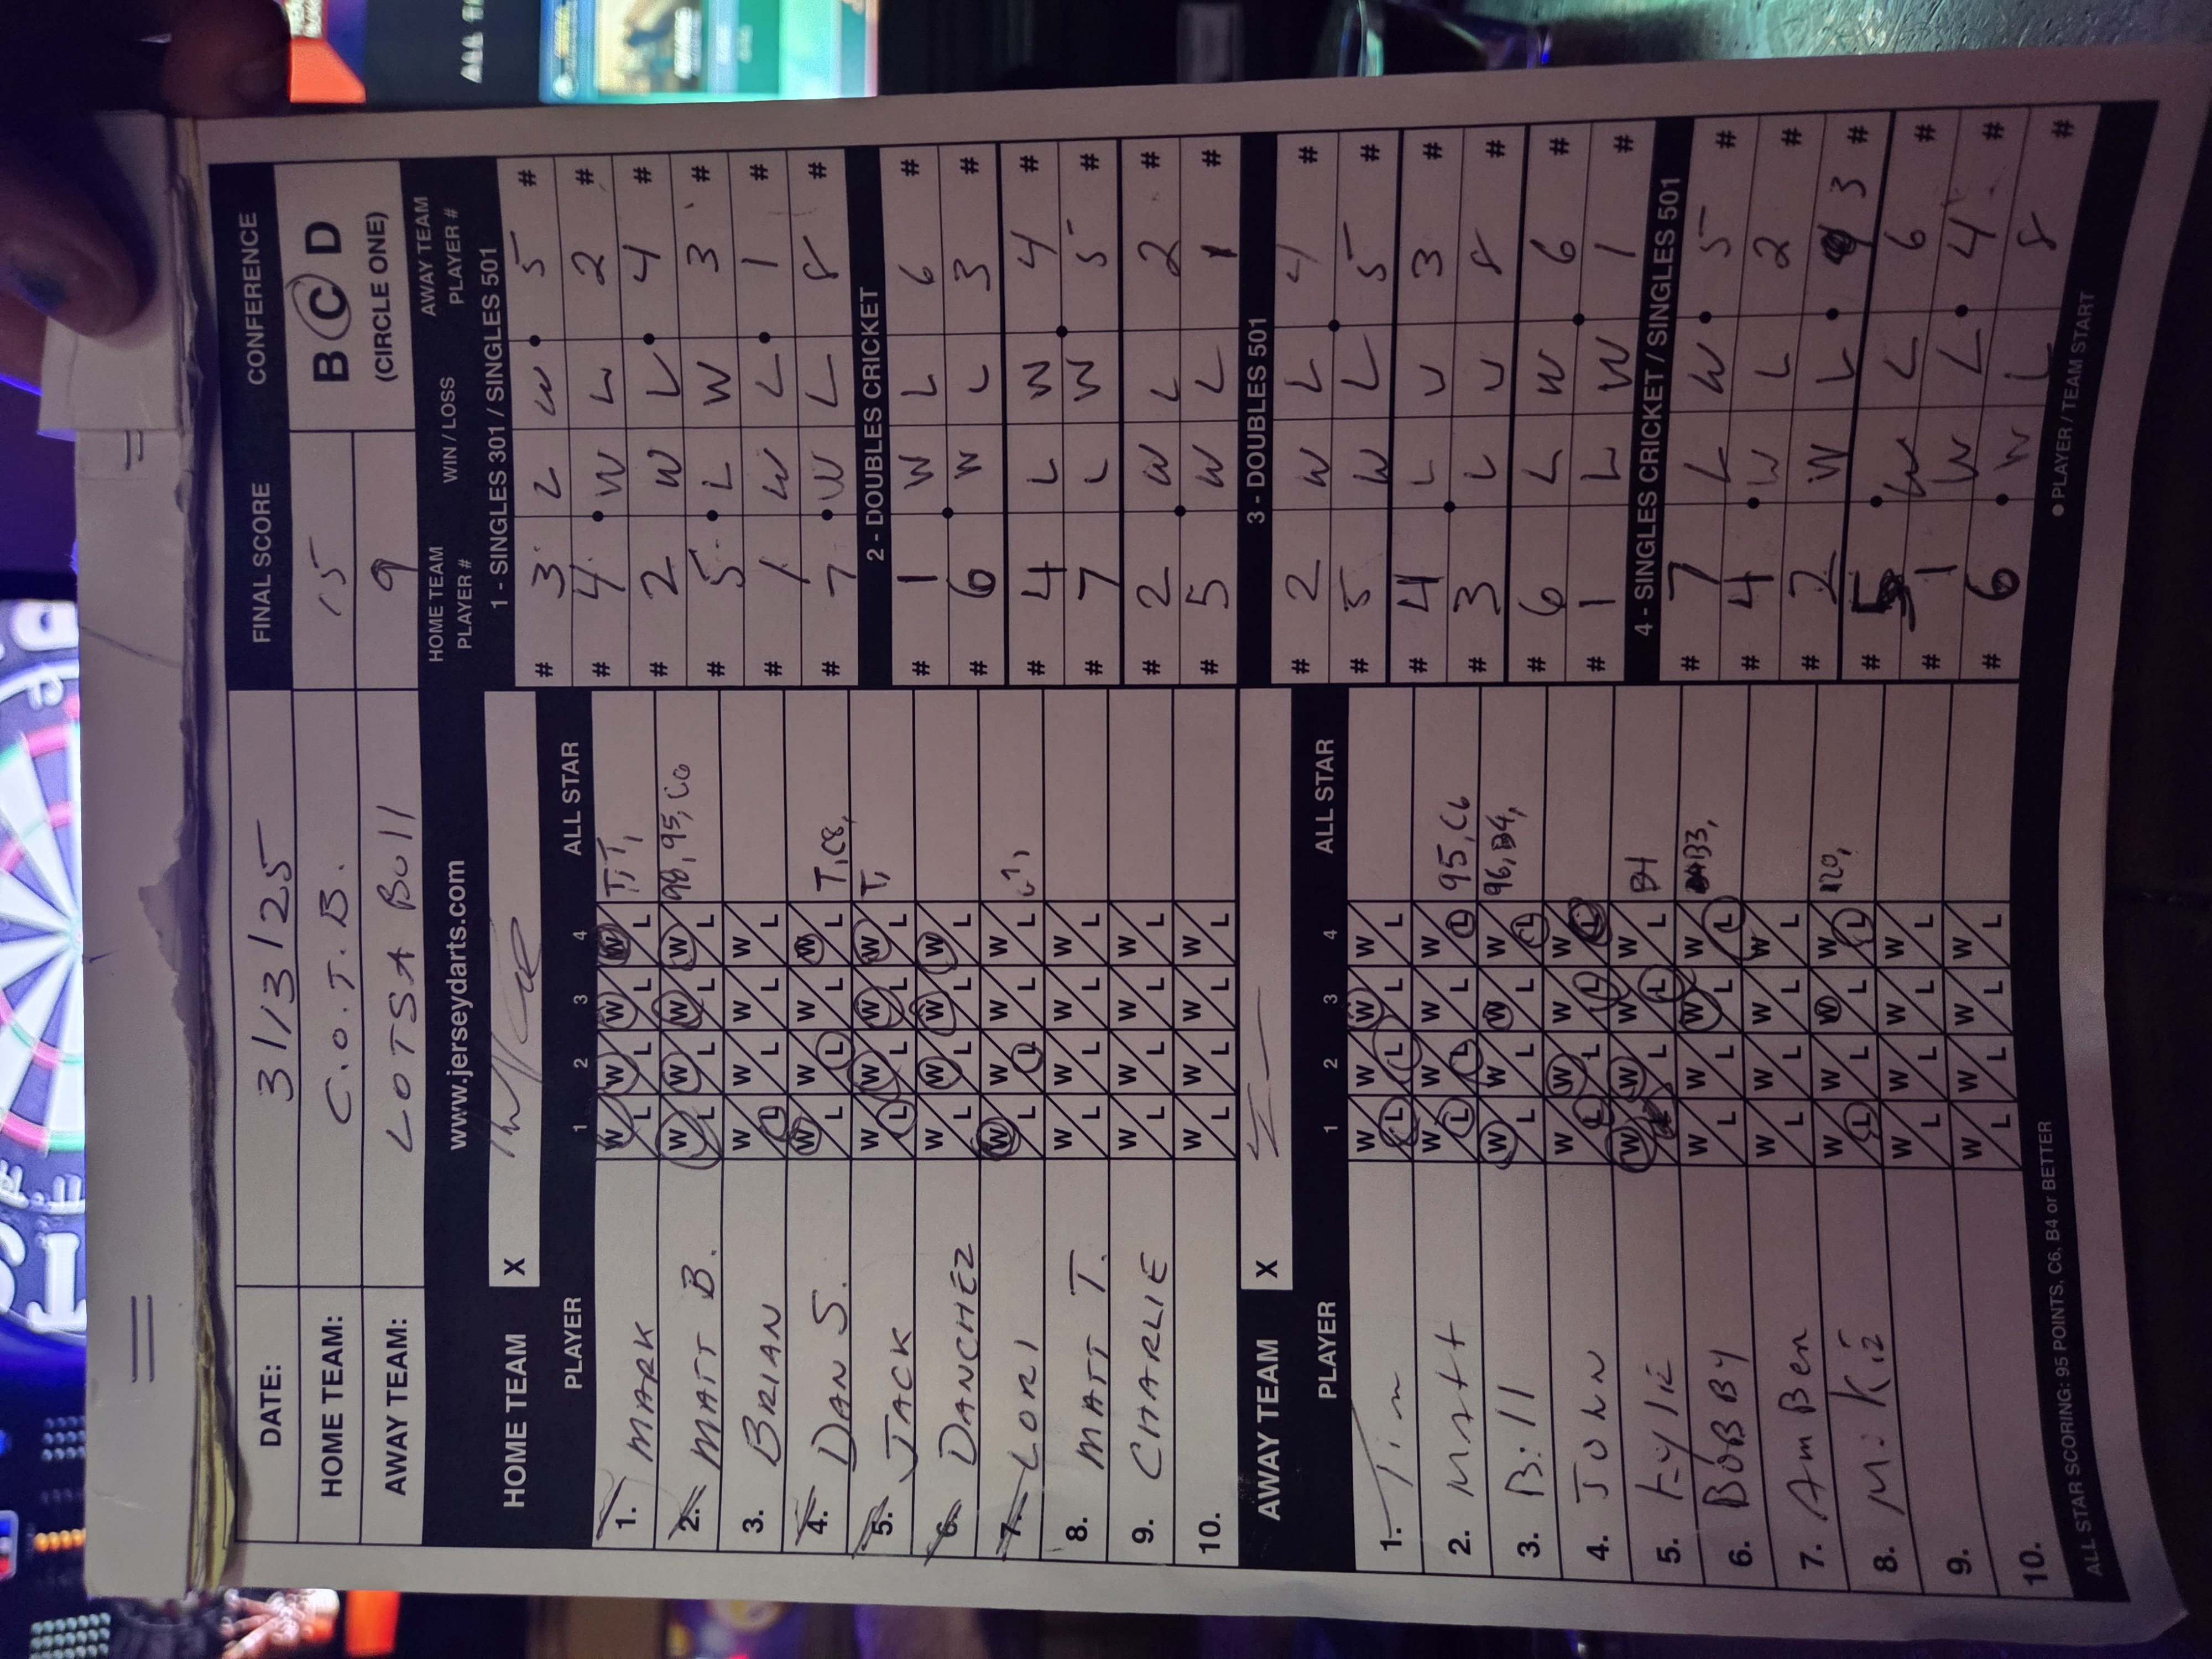 DATE: 3/13/25 FINAL SCORE CONFERENCE
HOME TEAM: C.O.T.B. 15 B C D
AWAY TEAM: LOTSA BUll 9 (CIRCLE ONE)
www.jerseydarts.com
HOME TEAM PLAYER # WIN / LOSS AWAY TEAM PLAYER #
HOME TEAM X
PLAYER 1 2 3 4 ALL STAR
1. MARK W L W L W L W L T, T,
2. MATT B. W L W L W L W L 98, 95, C6
3. BRIAN W L W L W L W L
4. DAN S. W L W L W L W L T, C8,
5. JACK W L W L W L W L T,
6. DANCHEZ W L W L W L W L
7. LORI W L W L W L W L
8. MATT T. W L W L W L W L
9. CHARLIE W L W L W L W L
10. W L W L W L W L
AWAY TEAM X
PLAYER 1 2 3 4 ALL STAR
1. Tim W L W L W L W L
2. Matt W L W L W L W L 95, C6
3. Bill W L W L W L W L 96, B4,
4. JOHN W L W L W L W L
5. Kylie W L W L W L W L B4
6. BOBBY W L W L W L W L B3,
7. Am Ben W L W L W L W L
8. Mike W L W L W L W L 120,
9. W L W L W L W L
10. W L W L W L W L
1 - SINGLES 301 / SINGLES 501
# 3 L W 5 #
# 4 W L 2 #
# 2 W L 4 #
# 5 L W 3 #
# 1 W L 1 #
# 7 W L 8 #
2 - DOUBLES CRICKET
# 1 W L 6 #
# 6 W L 3 #
# 4 L W 4 #
# 7 L W 5 #
# 2 W L 2 #
# 5 W L 1 #
3 - DOUBLES 501
# 2 W L 4 #
# 5 W L 5 #
# 4 L W 3 #
# 3 L W 8 #
# 6 L W 6 #
# 1 L W 1 #
4 - SINGLES CRICKET / SINGLES 501
# 7 L W 5 #
# 4 W L 2 #
# 2 W L 3 #
# 5 W L 6 #
# 1 W L 4 #
# 6 W L 8 #
ALL STAR SCORING: 95 POINTS, C6, B4 or BETTER
● PLAYER / TEAM START